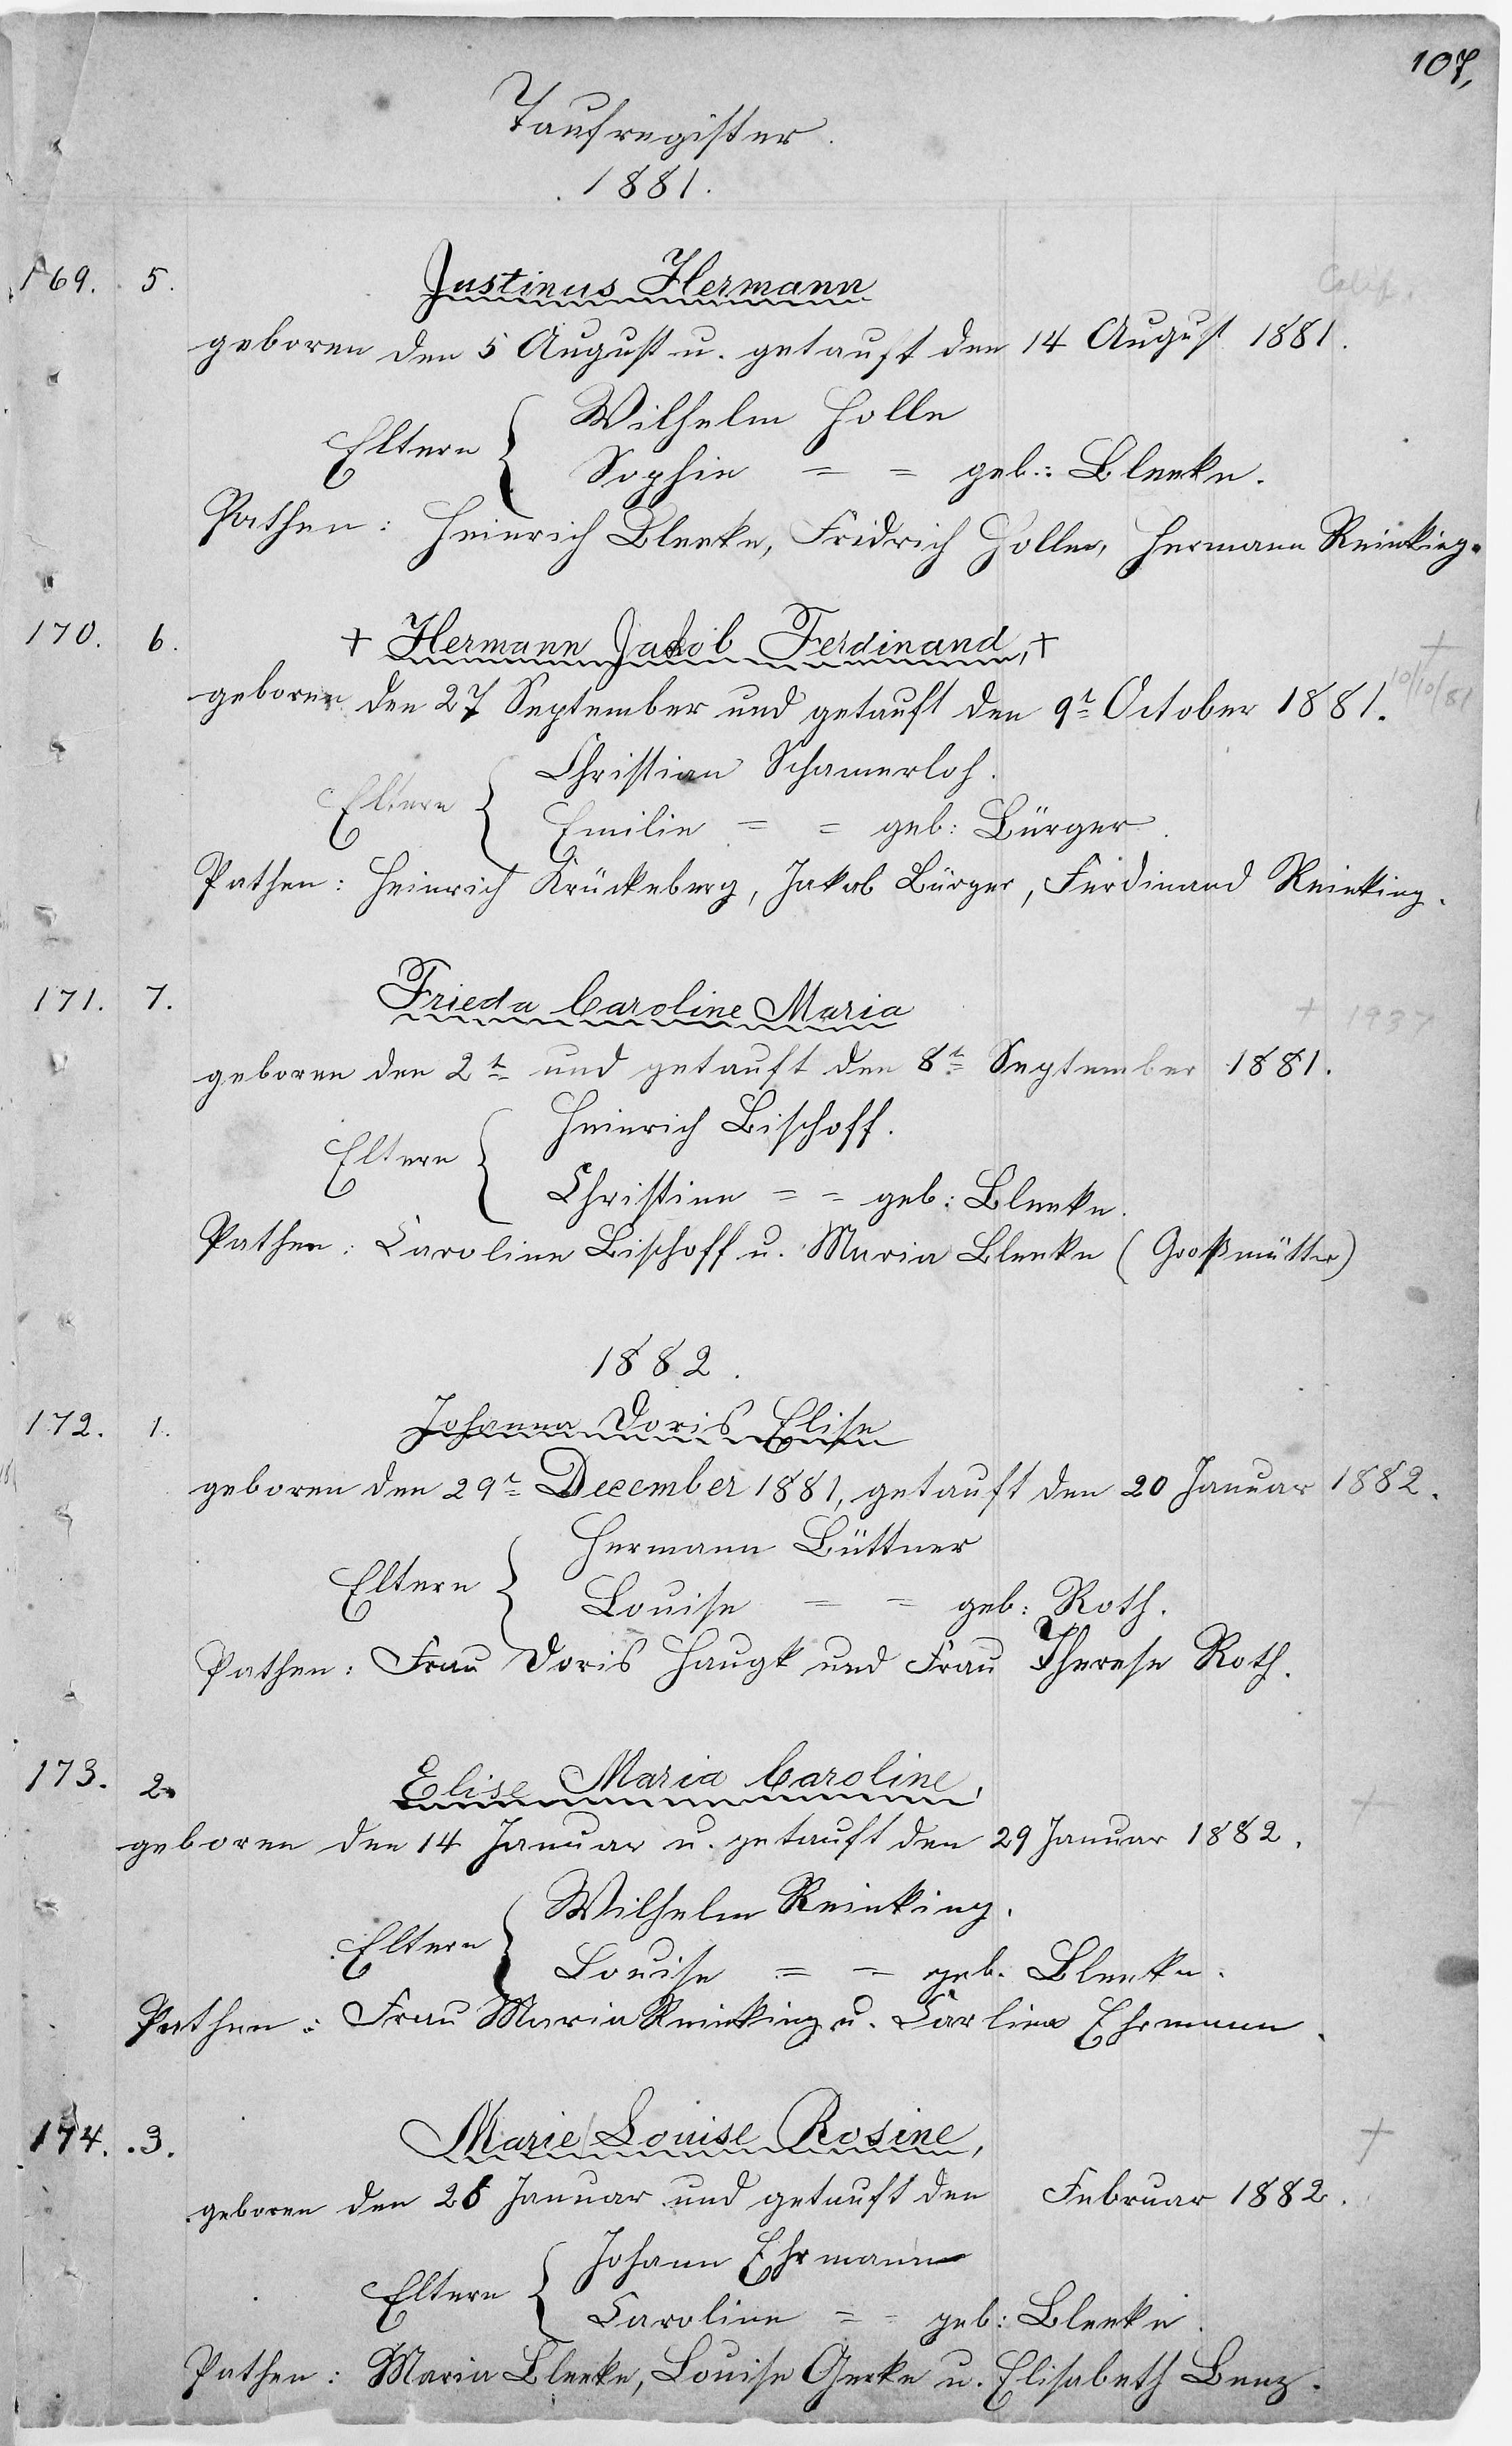 107,
Taufregister.
1881.
169. 5. Justinus Hermann
Calif.
geboren den 5 August u. getauft den 14 August 1881.
Wilhelm Holle
Eltern {
Sophie = = geb.: Bleeke.
Pathen: Heinrich Bleeke, Fridrich Holle, Hermann Reinking.
170. 6. + Hermann Jakob Ferdinand, +
+ 10/10/81
geboren den 27 September und getauft den 9t October 1881.
Christian Schamerloh.
Eltern {
Emilie = = geb: Bürger.
Pathen: Heinrich Krückeberg, Jakob Bürger, Ferdinand Reinking.
171. 7. Frieda Caroline Maria
+ 1937
geboren den 2t und getauft den 8t September 1881.
Heinrich Bischoff.
Eltern {
Christine = = geb: Bleeke.
Pathen: Caroline Bischoff u. Maria Bleeke (Großmütter)
1882.
172. 1. Johanna Doris Elise
geboren den 29t December 1881, getauft den 20 Januar 1882.
Hermann Büttner
Eltern {
Louise = = geb: Roth.
Pathen: Frau Doris Haugk und Frau Therese Roth.
173. 2. Elise Maria Caroline,
+
geboren den 14 Januar u. getauft den 29 Januar 1882.
Wilhelm Reinking.
Eltern {
Louise = = geb. Bleeke.
Pathen: Frau Maria Reinking u. Carline Ehrmann.
174. 3. Marie Louise Rosine,
+
geboren den 26 Januar und getauft den Februar 1882.
Johann Ehrmann
Eltern {
Caroline = = geb: Bleeke.
Pathen: Maria Bleeke, Louise Gerke u. Elisabeth Benz.